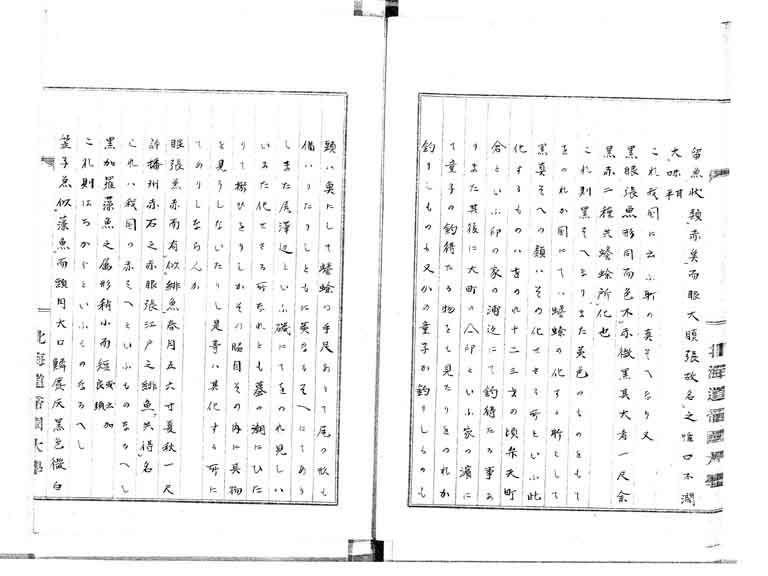 留魚状類「赤魚」而眼大瞋張故名」之惟口不濶
大味耕
これ我国に云ふ所の真そへなり又
黒眼張魚形同而色不「赤微黒其大者一尺余
黒赤二種共蟾蜍所化也
これ則黒そへなりまた黄色のものをもて
をのれか国にてい蟾蜍の化する所として
黒真そへの類ハその化せさる所といふ此
化するものハ古のれ十二三才の頃弁天町
合といふ印の家の浦辺にて釣得たる事あ
りまた其後に大町の仝印といふ家の濱に
て童子の釣得たる物をも見たりをのれか
釣りしものも又かの童子か釣りしものも
類ハ奥にして蟾蜍の手足ありて尾の吹も
備ハりたりしともに黄なるそへにてあり
しまた尾澤辺といふ磯にてをのれ見しい
いまた化せさる所なれとも蟇の潮にひた
りて搦ひをりしかその脇目その内に具物
を見うしないたりし是等ハ其化する所に
てありしならんか
眼張魚赤而有「似緋魚」春月五六寸夏秋一尺
許播州赤石之赤眼張江戸之緋魚「共得」名
これハ我国の赤そへといふものなるへし
黒加羅藻魚之属形稍小而短
これ則はちからといふものなるへし
笠子魚似「藻魚」而頭円大口鱗麁灰黒色微白
北海道帝国大學